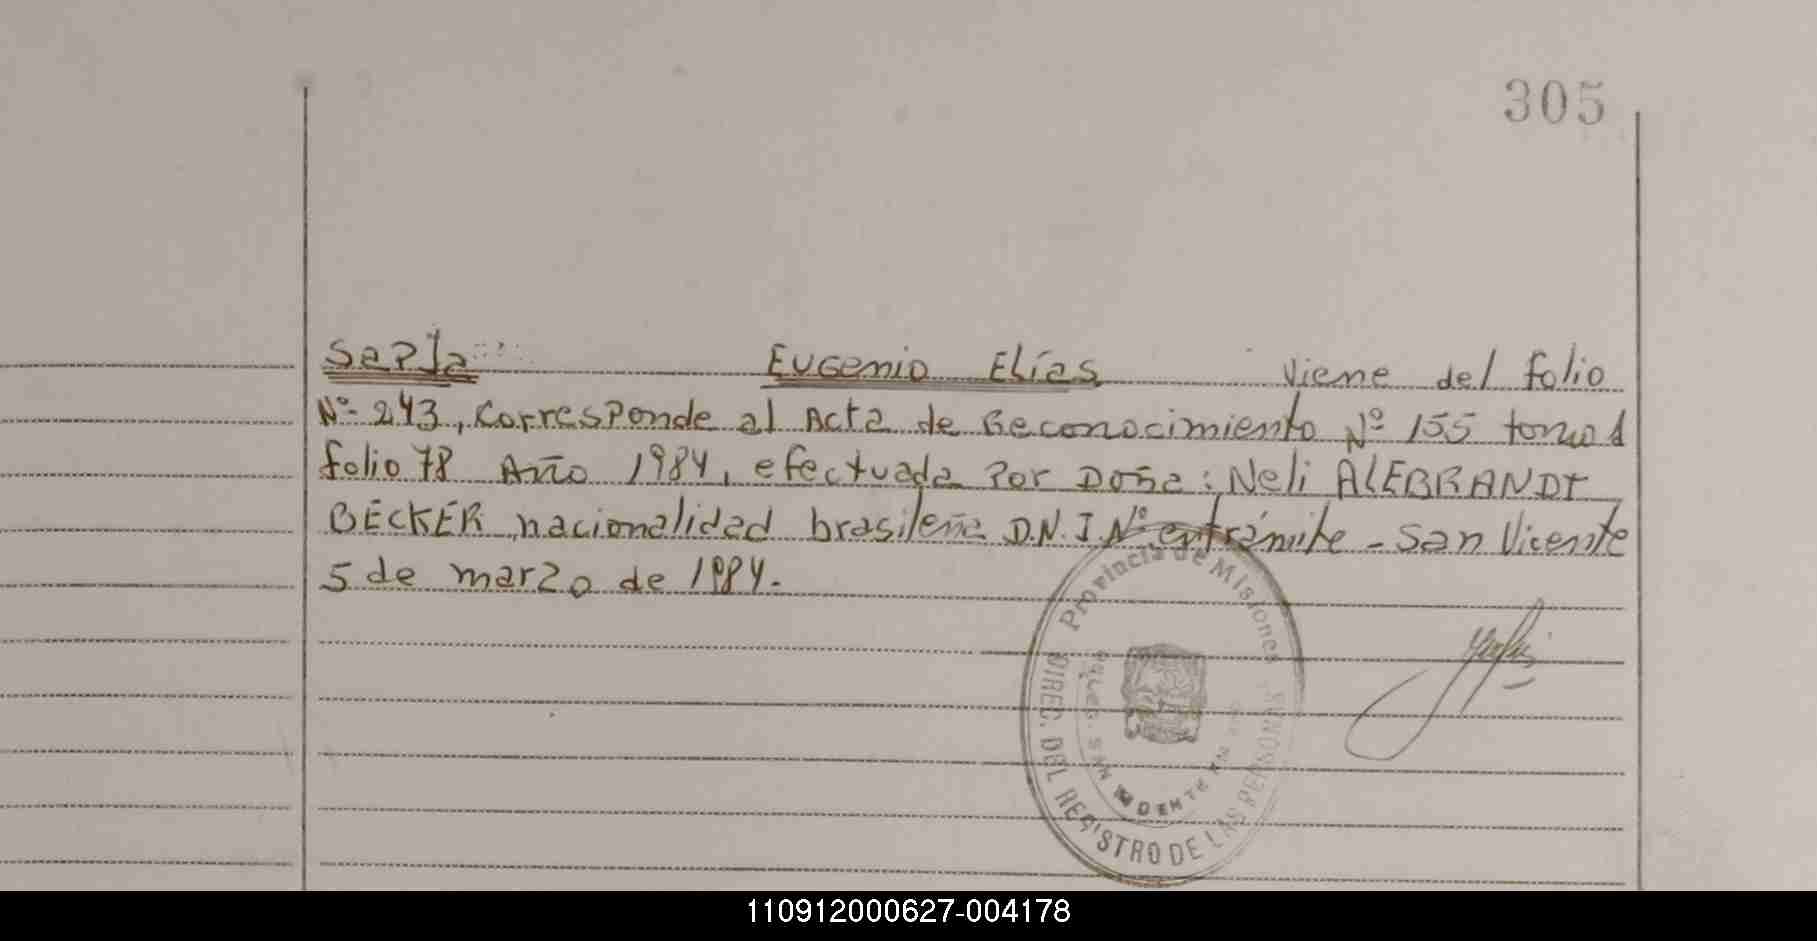 305
SaPJa Eugenio Elías viene del folio
Nº 243, Corresponde al Acta de Reconocimiento Nº 155 tomo 1
folio 78 Año 1984, efectuada Por Doña: Neli ALEBRANDT
BECKER nacionalidad brasileña D.N.I. Nº en trámite - San Vicente
5 de marzo de 1984.
Provincia de Misiones
DIREC. DEL REGISTRO DE LAS PERSONAS
SAN
110912000627-004178